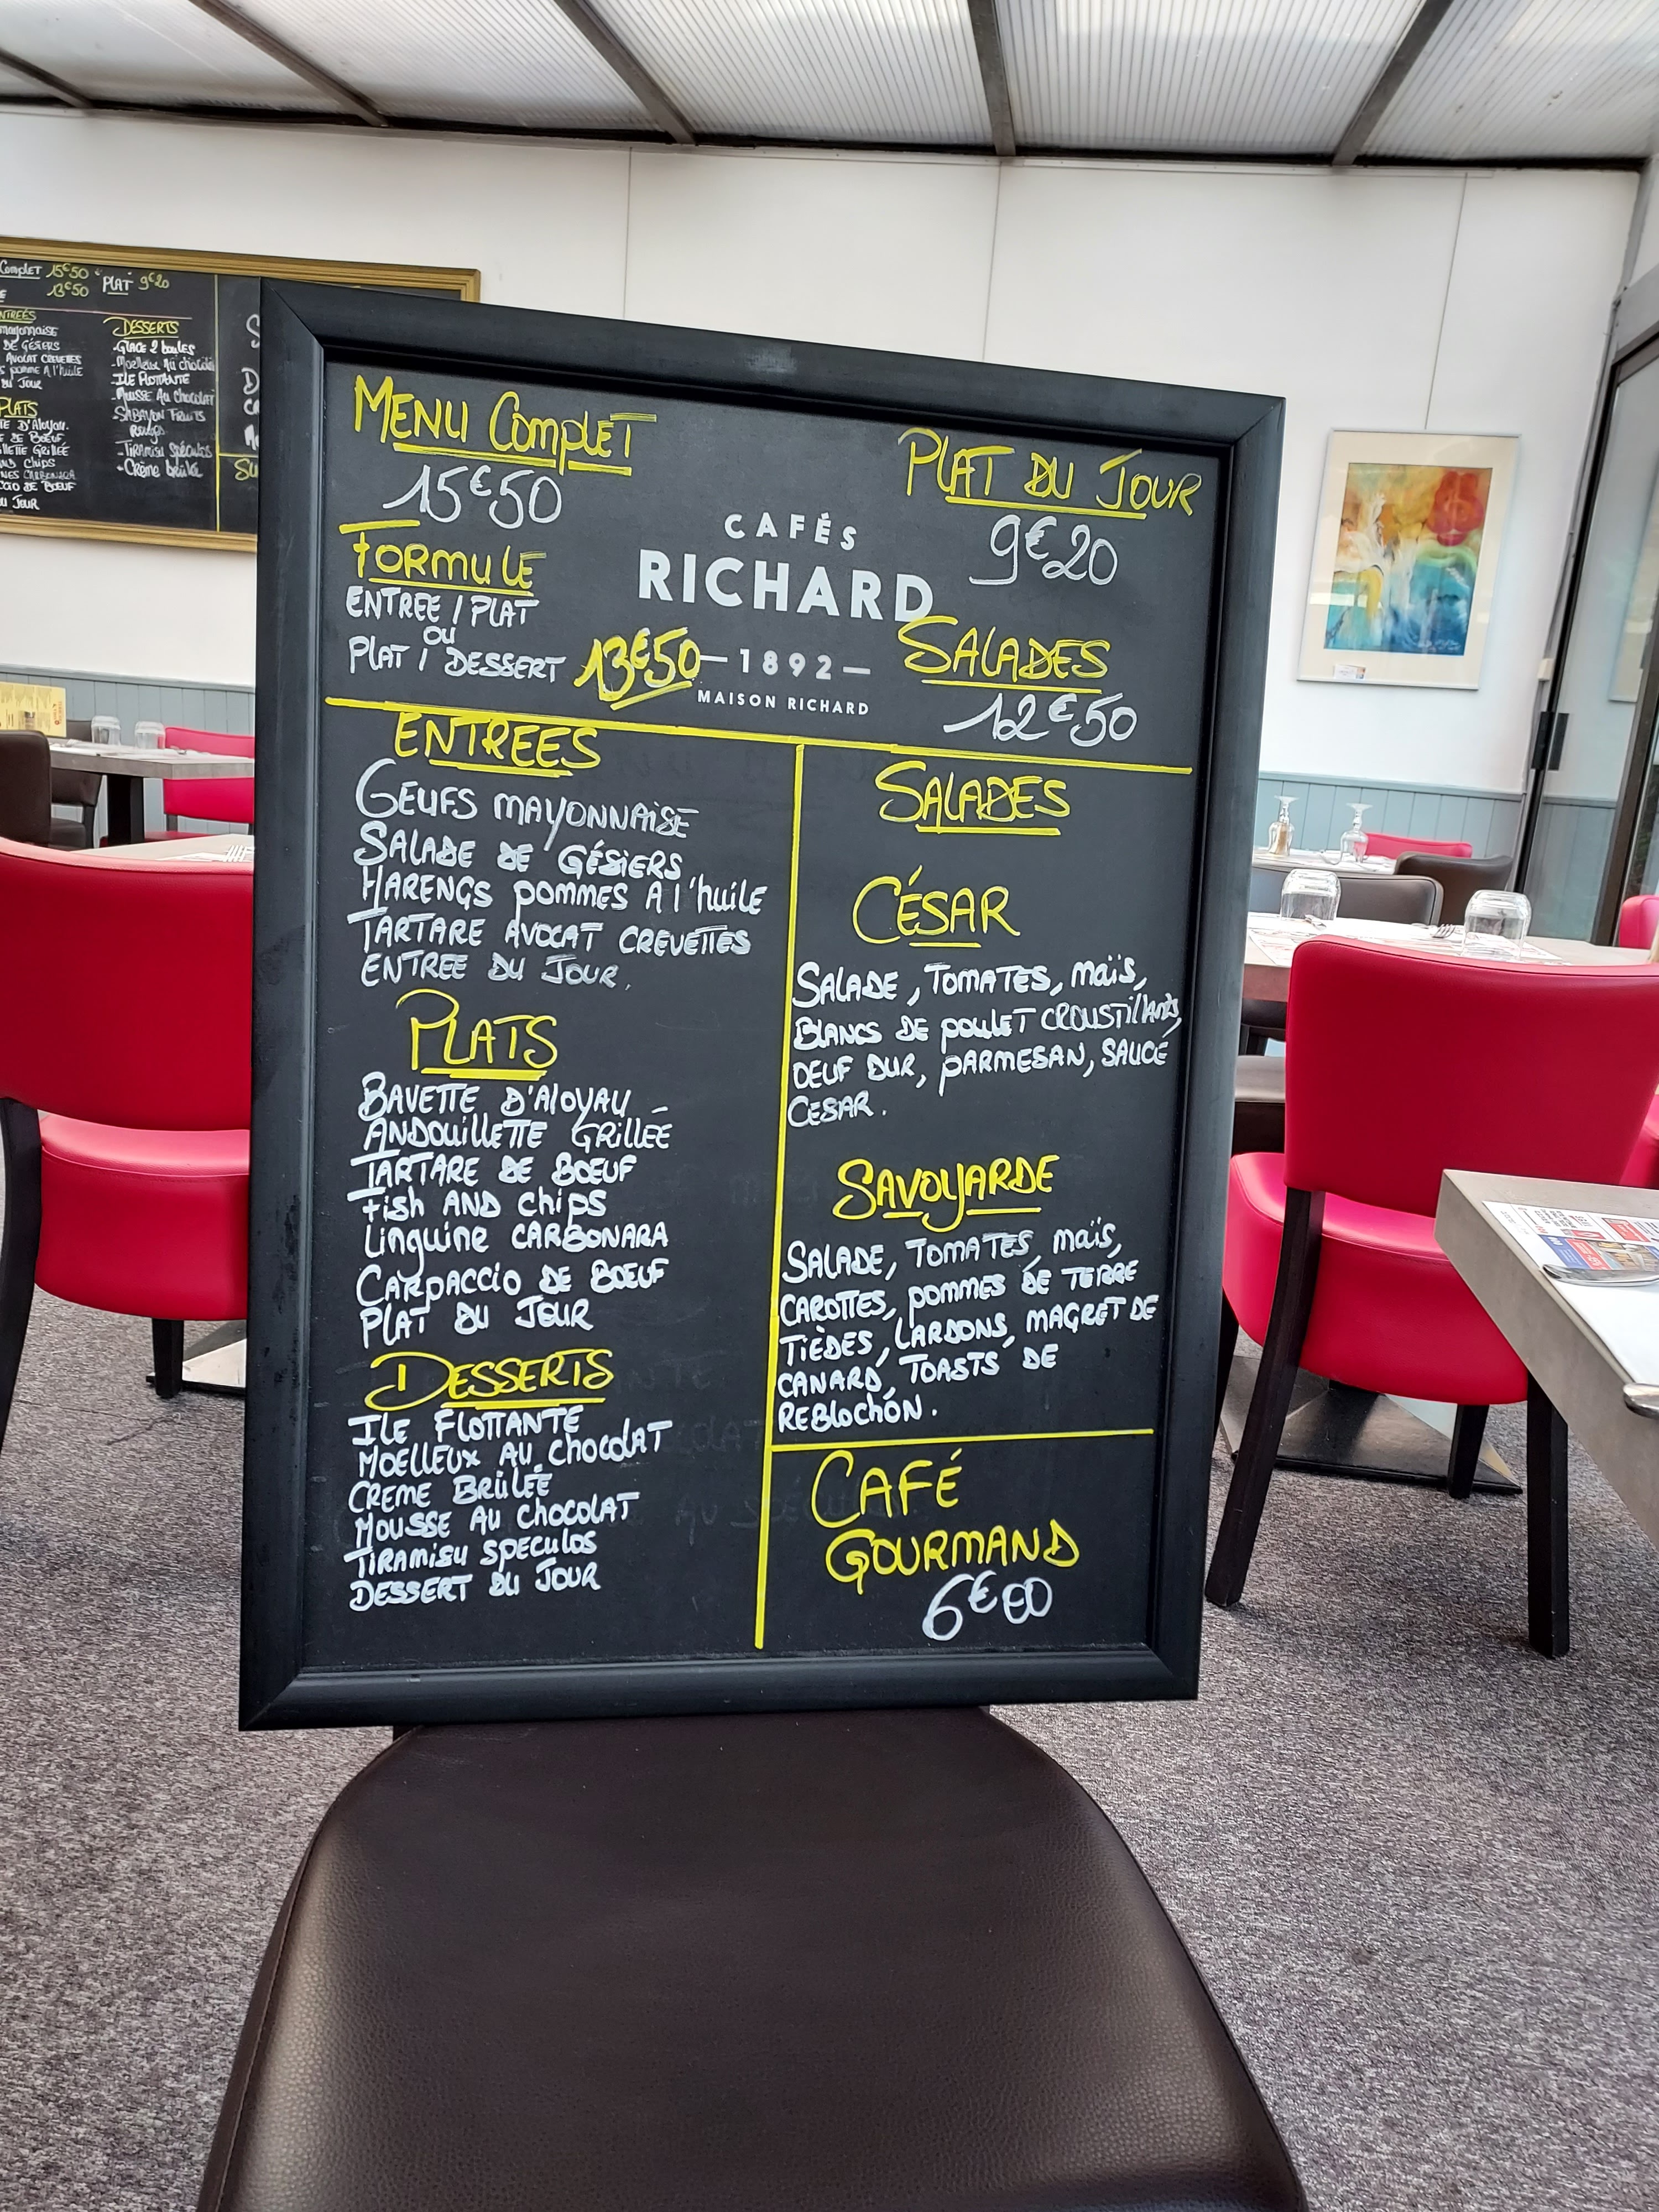 Complet 15€50
13€50
PLAT 9€20
MAYONNAISE
DE GÉSIERS
AVOCAT CREVETTES
POMME A l'huile
JOUR
PLATS
D'Aloyau
DE BOEUF
GRILLÉE
chips
CARBONARA
DE BOEUF
JOUR
DESSERTS
-GLACE 2 boules
-Moelleux Au chocolat
-ILE FLOTTANTE
-MOUSSE AU CHOCOLAT
-SABAYON FRUITS
ROUGES
-TIRAMISU Spéculos
-Crème brûlée
MENU COMPLET
15€50
FORMULE
ENTREE / PLAT
OU
PLAT / DESSERT 13€50
CAFÉS
RICHARD
—1892—
MAISON RICHARD
PLAT DU JOUR
9€20
SALADES
12€50
ENTREES
GEUFS MAYONNAISE
SALADE DE GÉSIERS
HARENGS POMMES A l'huile
TARTARE AVOCAT CREVETTES
ENTREE DU JOUR.
PLATS
BAVETTE D'AlOYAU
ANDOUILLETTE GRILLÉE
TARTARE DE BOEUF
Fish AND Chips
Linguine CARBONARA
CARPACCIO DE BOEUF
PLAT DU JOUR
DESSERTS
ILE FLOTTANTE
MOELLEUX AU ChocolAT
CREME BRÛLÉE
MOUSSE AU ChocolAT
TIRAMISU SPECULOS
DESSERT DU JOUR
SALADES
CÉSAR
SALADE, TOMATES, MAÏS,
BLANCS DE POULET CROUSTILLANTS,
OEUF DUR, PARMESAN, SAUCE
CESAR.
SAVOYARDE
SALADE, TOMATES, MAÏS,
CAROTTES, POMMES DE TERRE
TIÈDES, LARDONS, MAGRET DE
CANARD, TOASTS DE
REBLOCHON.
CAFÉ
GOURMAND
6€00